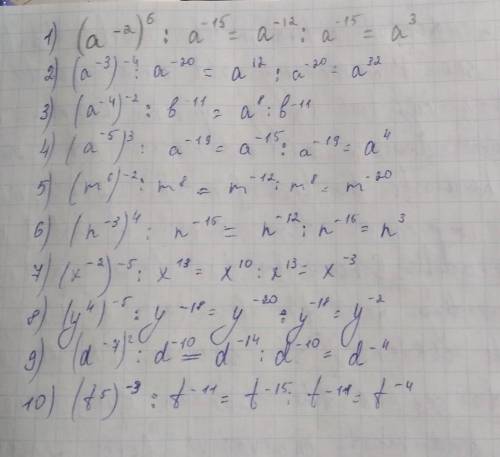 1) (a⁻²)⁶ : a⁻¹⁵ = a⁻¹² : a⁻¹⁵ = a³
2) (a⁻³)⁻⁴ : a⁻²⁰ = a¹² : a⁻²⁰ = a³²
3) (a⁻⁴)⁻² : b⁻¹¹ = a⁸ : b⁻¹¹
4) (a⁻⁵)³ : a⁻¹⁹ = a⁻¹⁵ : a⁻¹⁹ = a⁴
5) (m⁶)⁻² : m⁸ = m⁻¹² : m⁸ = m⁻²⁰
6) (n⁻³)⁴ : n⁻¹⁵ = n⁻¹² : n⁻¹⁵ = n³
7) (x⁻²)⁻⁵ : x¹³ = x¹⁰ : x¹³ = x⁻³
8) (y⁴)⁻⁵ : y⁻¹⁸ = y⁻²⁰ : y⁻¹⁸ = y⁻²
9) (d⁻⁷)² : d⁻¹⁰ = d⁻¹⁴ : d⁻¹⁰ = d⁻⁴
10) (t⁵)⁻³ : t⁻¹¹ = t⁻¹⁵ : t⁻¹¹ = t⁻⁴